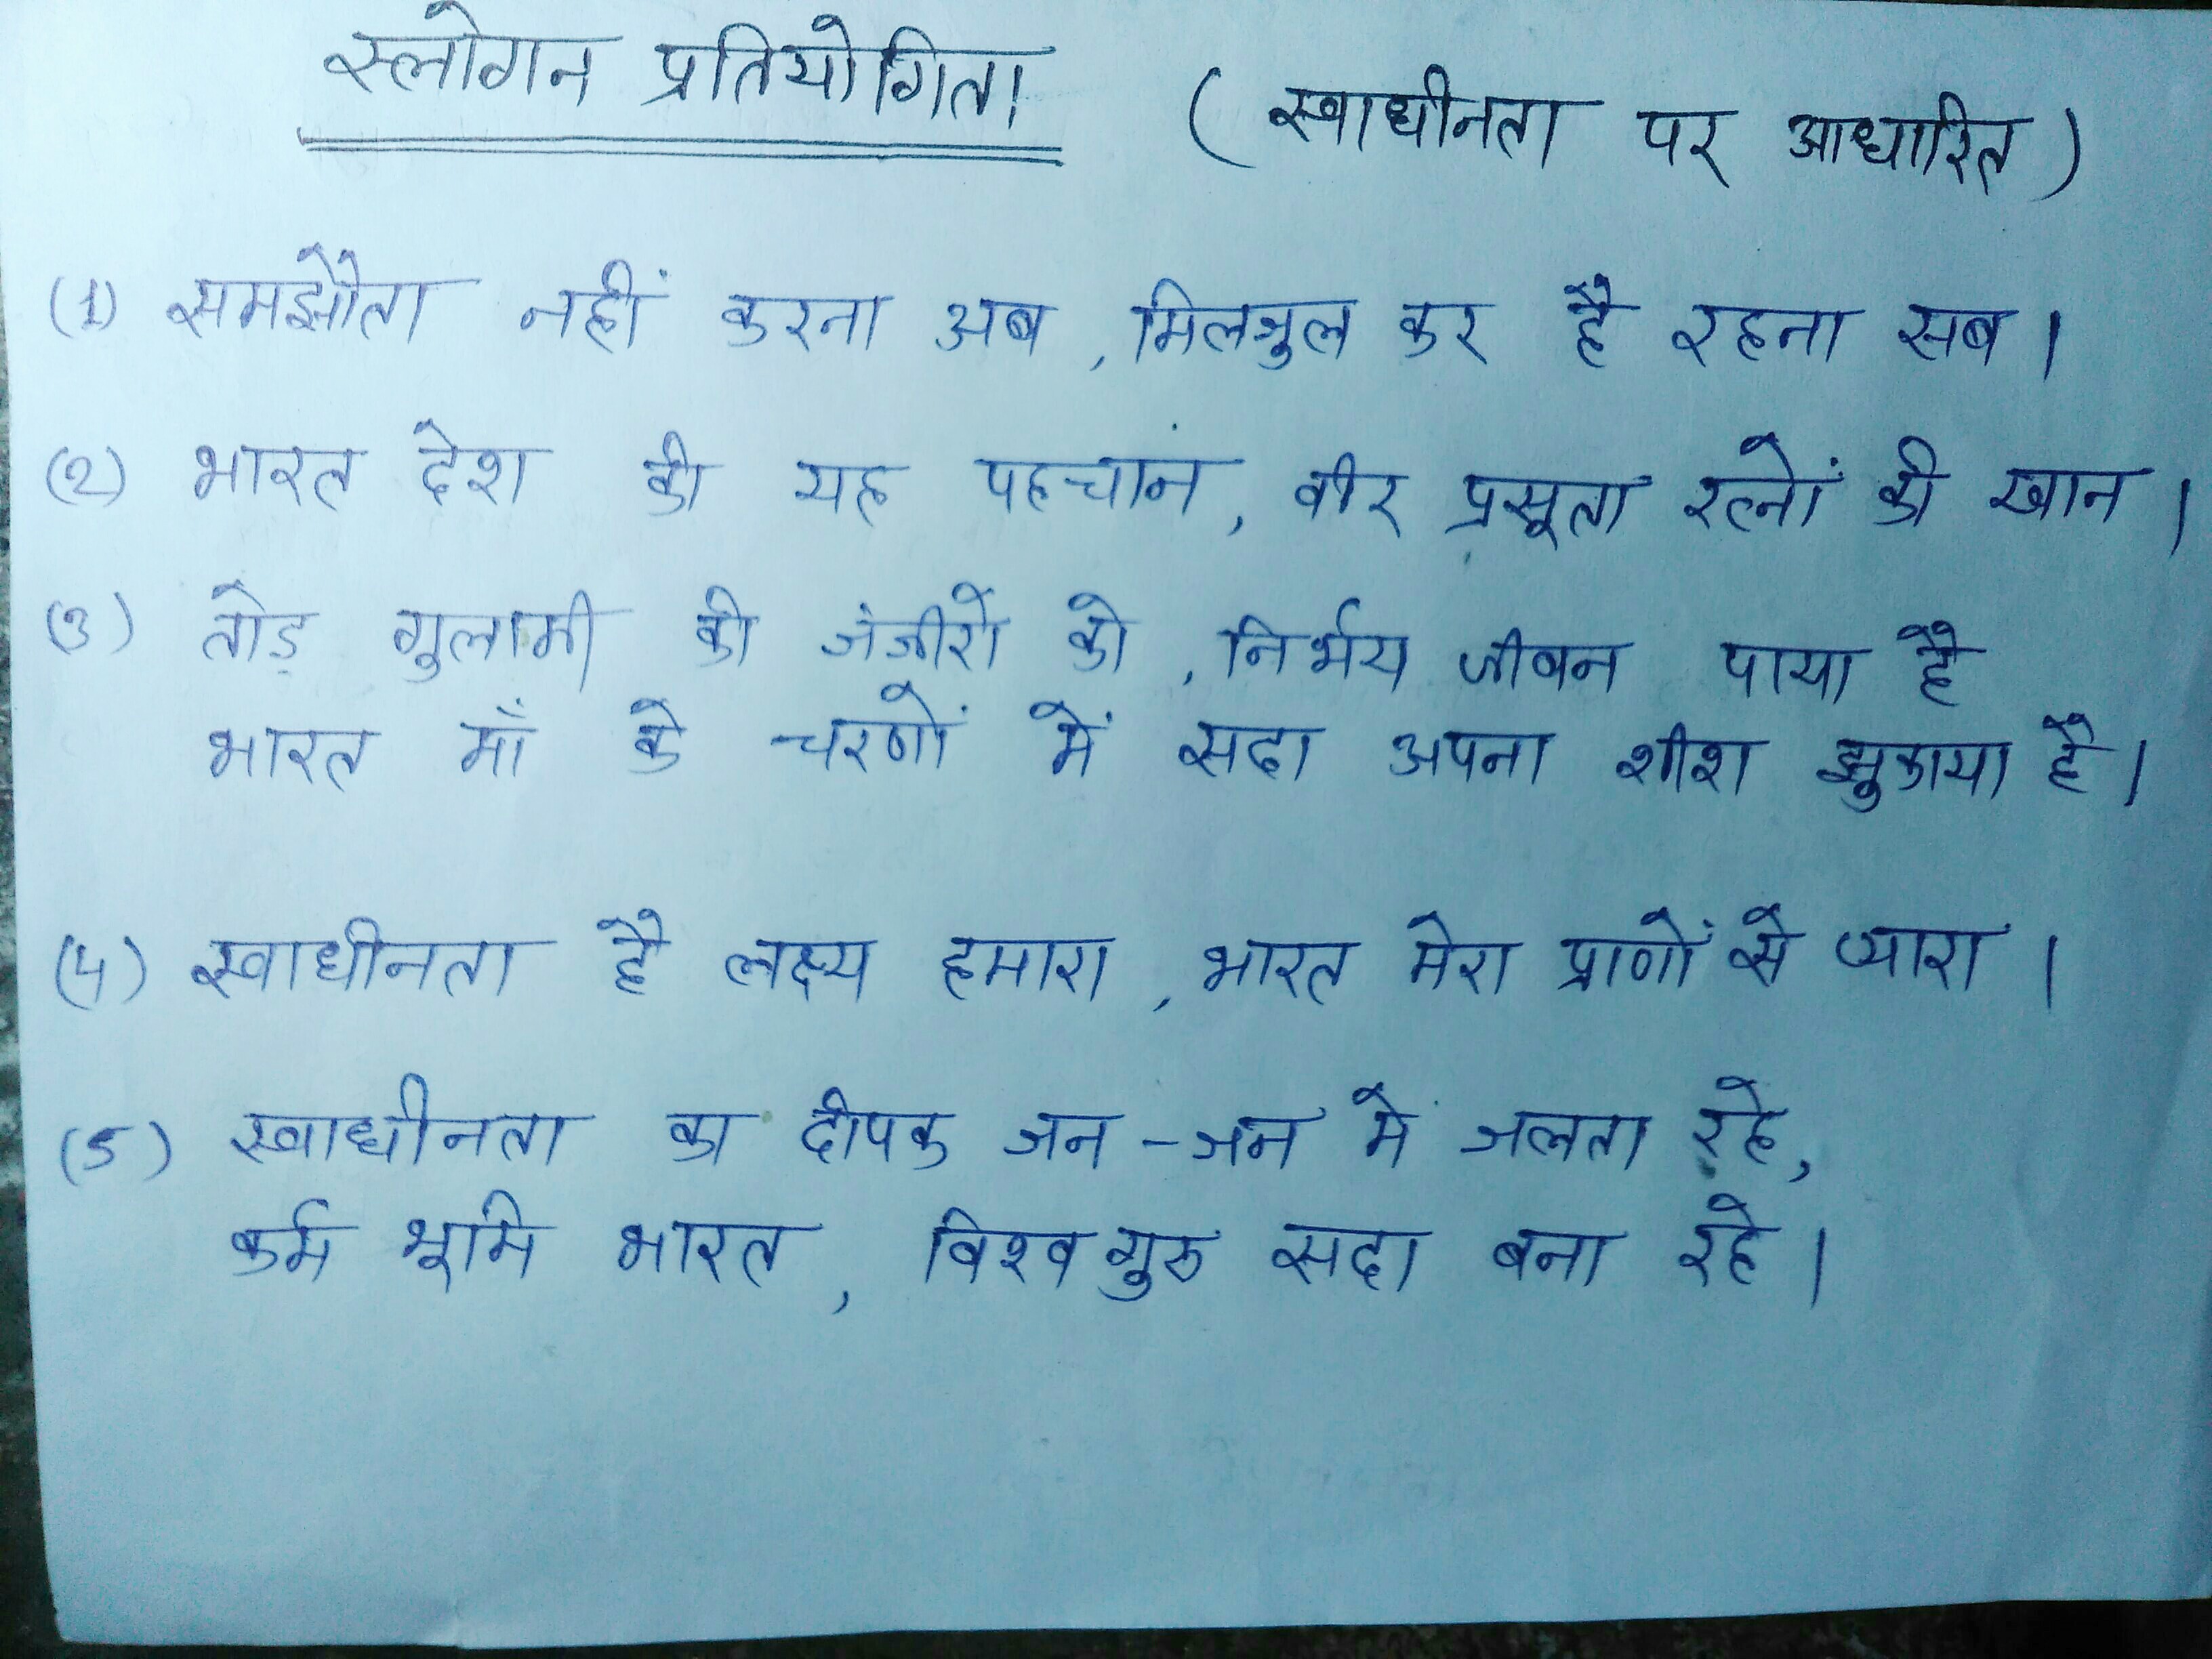 स्लोगन प्रतियोगिता (स्वाधीनता पर आधारित)
(1) समझौता नहीं करना अब, मिलजुल कर है रहना सब।
(2) भारत देश की यह पहचान, वीर प्रसूता रत्नों की खान।
(3) तोड़ गुलामी की जंजीरों को, निर्भय जीवन पाया है
भारत माँ के चरणों में सदा अपना शीश झुकाया है।
(4) स्वाधीनता है लक्ष्य हमारा, भारत मेरा प्राणों से प्यारा।
(5) स्वाधीनता का दीपक जन-जन में जलता रहे,
कर्म भूमि भारत, विश्व गुरु सदा बना रहे।